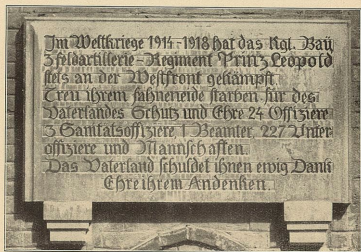 Im Weltkriege 1914-1918 hat das Kgl. Bay.
7. Feldartillerie-Regiment Prinz Leopold
stets an der Westfront gekämpft.
Treu ihrem Fahneneide starben für des
Vaterlandes Schutz und Ehre 24 Offiziere
3 Sanitätsoffiziere 1 Beamter, 227 Unter-
offiziere und Mannschaften.
Das Vaterland schuldet ihnen ewig Dank
Ehre ihrem Andenken.